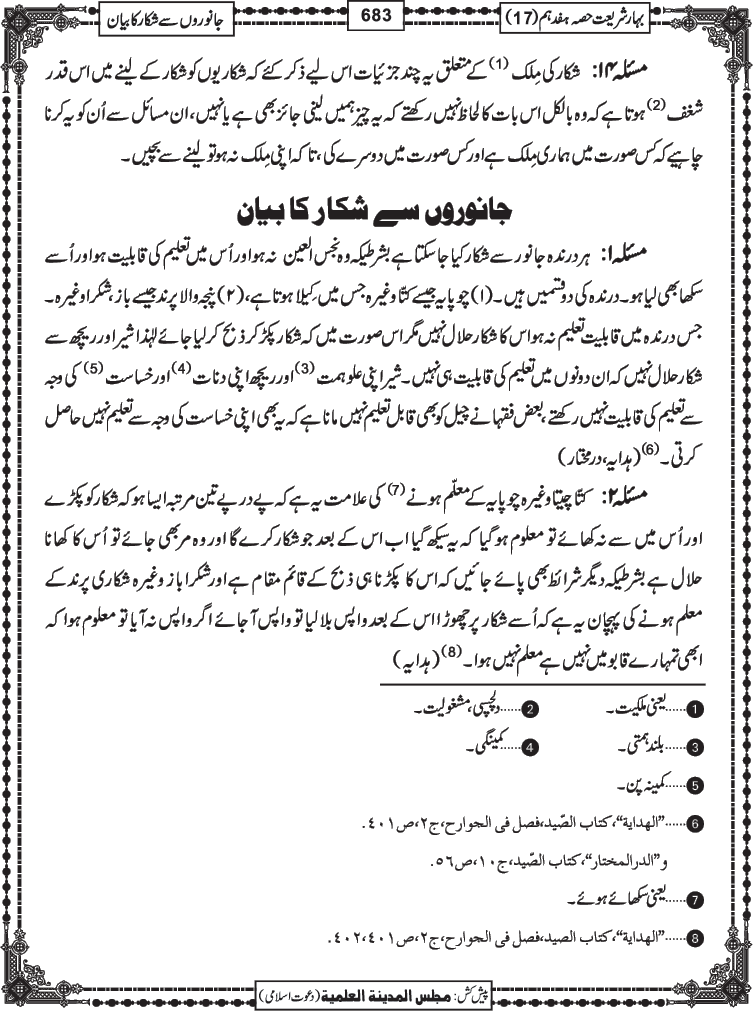 بہار شریعت حصہ ہفدہم (17)
683
جانوروں سے شکار کا بیان
مسئلہ ۱۴: شکار کی مِلک (1) کے متعلق یہ چند جزئیات اس لیے ذکر کئے گئے کہ شکاریوں کو شکار کے لینے میں اس قدر
شغف (2) ہوتا ہے کہ وہ بالکل اس بات کا لحاظ نہیں رکھتے کہ یہ چیز ہمیں لینی جائز بھی ہے یا نہیں، ان مسائل سے اُن کو یہ کرنا
چاہیے کہ کس صورت میں ہماری مِلک ہے اور کس صورت میں دوسرے کی، تاکہ اپنی مِلک نہ ہو تو لینے سے بچیں۔
جانوروں سے شکار کا بیان
مسئلہ ۱: ہر درندہ جانور سے شکار کیا جاسکتا ہے بشرطیکہ وہ نجس العین نہ ہو اور اُس میں تعلیم کی قابلیت ہو اور اُسے
سکھا بھی لیا ہو۔ درندہ کی دو قسمیں ہیں۔ (۱) چوپایہ جیسے کتّا وغیرہ جس میں کِیلا ہوتا ہے، (۲) پنجہ والا پرند جیسے باز، شکرا وغیرہ۔
جس درندہ میں قابلیت تعلیم نہ ہو اس کا شکار حلال نہیں مگر اس صورت میں کہ شکار پکڑ کر ذبح کرلیا جائے لہٰذا شیر اور ریچھ سے
شکار حلال نہیں کہ ان دونوں میں تعلیم کی قابلیت ہی نہیں۔ شیر اپنی علو ہمت (3) اور ریچھ اپنی دنات (4) اور خساست (5) کی وجہ
سے تعلیم کی قابلیت نہیں رکھتے، بعض فقہا نے چیل کو بھی قابل تعلیم نہیں مانا ہے کہ یہ بھی اپنی خساست کی وجہ سے تعلیم نہیں حاصل
کرتی۔ (6) (ہدایہ، درمختار)
مسئلہ ۲: کتّا چیتا وغیرہ چوپایہ کے معلّم ہونے (7) کی علامت یہ ہے کہ پے در پے تین مرتبہ ایسا ہو کہ شکار کو پکڑے
اور اُس میں سے نہ کھائے تو معلوم ہوگیا کہ یہ سیکھ گیا اب اس کے بعد جو شکار کرے گا اور وہ مر بھی جائے تو اُس کا کھانا
حلال ہے بشرطیکہ دیگر شرائط بھی پائے جائیں کہ اس کا پکڑنا ہی ذبح کے قائم مقام ہے اور شکرا باز وغیرہ شکاری پرند کے
معلم ہونے کی پہچان یہ ہے کہ اُسے شکار پر چھوڑا اس کے بعد واپس بلالیا تو واپس آجائے اگر واپس نہ آیا تو معلوم ہوا کہ
ابھی تمہارے قابو میں نہیں ہے معلم نہیں ہوا۔ (8) (ہدایہ)
1......یعنی ملکیت۔ 2......دلچسپی، مشغولیت۔
3......بلند ہمتی۔ 4......کمینگی۔
5......کمینہ پن۔
6......"الهداية"، كتاب الصّيد، فصل فى الجوارح، ج٢، ص٤٠١.
و"الدرالمختار"، كتاب الصّيد، ج١٠، ص٥٦.
7......یعنی سکھائے ہوئے۔
8......"الهداية"، كتاب الصيد، فصل فى الجوارح، ج٢، ص٤٠١، ٤٠٢.
پیش کش: مجلس المدینة العلمیة (دعوت اسلامی)